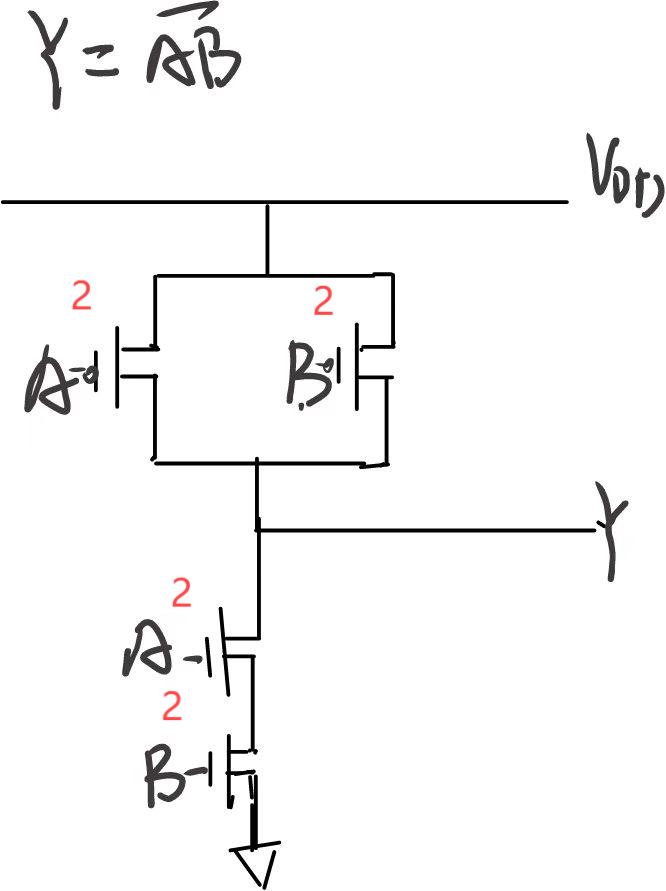 Y = \overline{AB}
VDD
2
2
A
B
Y
2
A
2
B